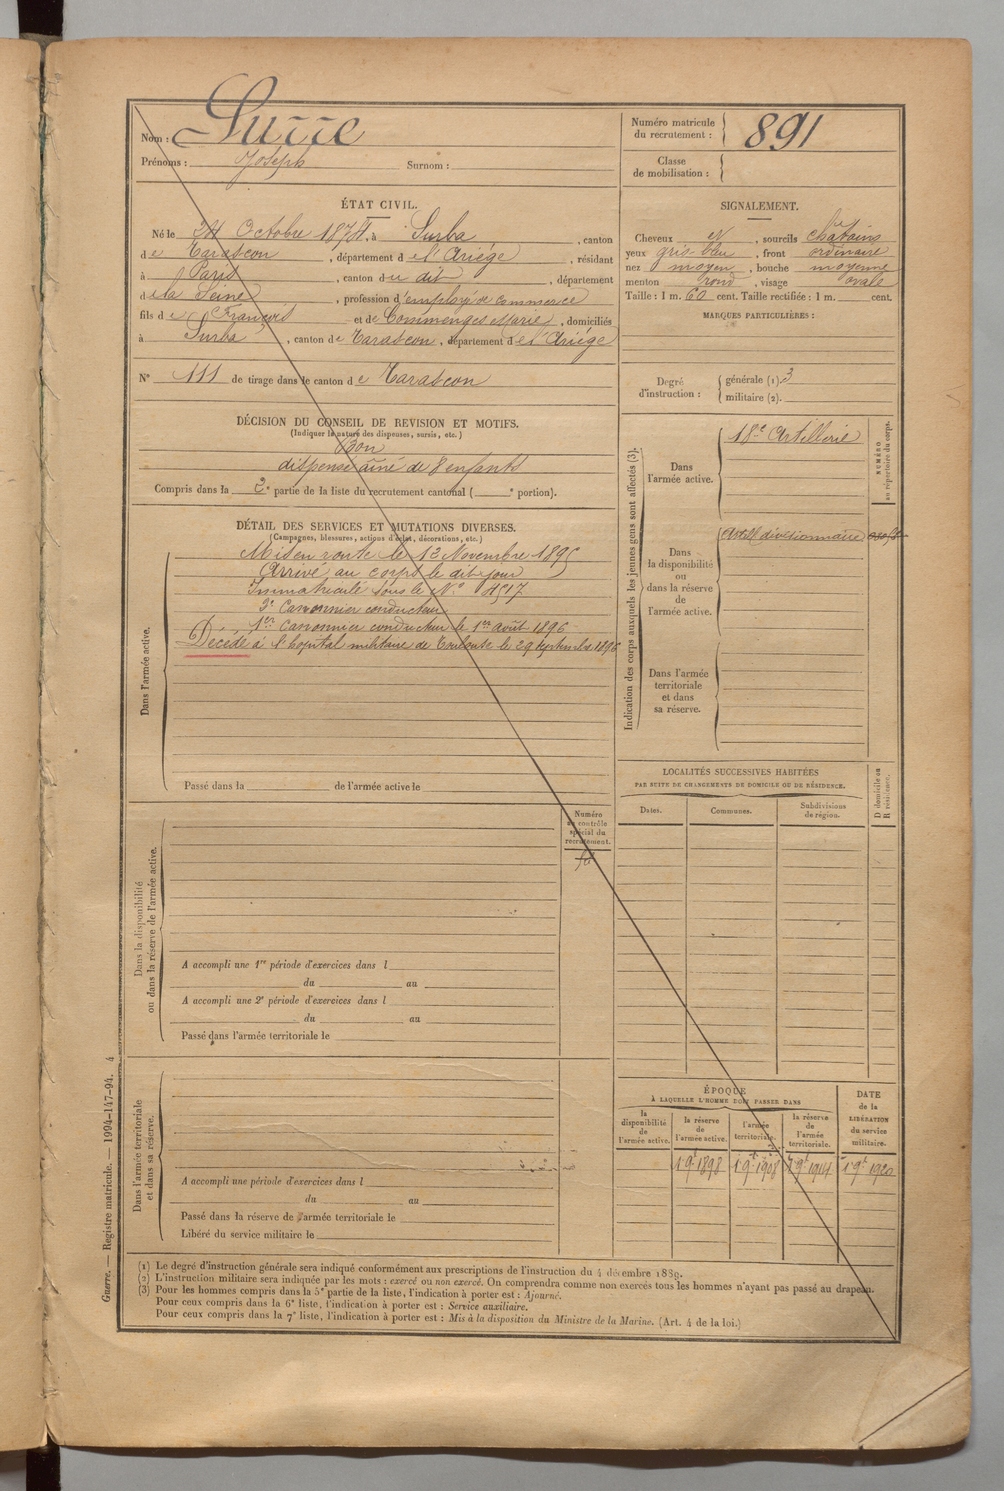 Nom : Surre
Prénoms : Joseph Surnom :
Numéro matricule du recrutement : 891
Classe de mobilisation :
ÉTAT CIVIL.
Né le 24 Octobre 1874, à Surba, canton
de Tarascon, département de l'Ariége, résidant
à Paris, canton du dit, département
de la Seine, profession d'employé de commerce
fils de François et de Commenges Marie, domiciliés
à Surba, canton de Tarascon, département de l'Ariége
N° 111 de tirage dans le canton de Tarascon
SIGNALEMENT.
Cheveux et, sourcils châtains
yeux gris-bleu, front ordinaire
nez moyen, bouche moyenne
menton rond, visage ovale
Taille : 1 m. 60 cent. Taille rectifiée : 1 m. cent.
MARQUES PARTICULIÈRES :
Degré d'instruction : générale (1). 3
militaire (2).
DÉCISION DU CONSEIL DE REVISION ET MOTIFS.
(Indiquer la nature des dispenses, sursis, etc.)
Bon
dispensé aîné de 8 enfants
Compris dans la 2e partie de la liste du recrutement cantonal ( e portion).
DÉTAIL DES SERVICES ET MUTATIONS DIVERSES.
(Campagnes, blessures, actions d'éclat, décorations, etc.)
Dans l'armée active.
Mis en route le 13 Novembre 1895
Arrivé au corps le dit jour
Immatriculé sous le N° 4517
2e Canonnier conducteur
1er Canonnier conducteur le 1er août 1896
Décédé à l'hopital militaire de Toulouse le 29 septembre 1896
Passé dans la de l'armée active le
Indication des corps auxquels les jeunes gens sont affectés (3).
Dans l'armée active.
18e Artillerie
NUMÉRO au répertoire du corps.
Dans la disponibilité ou dans la réserve de l'armée active.
Artill divisionnaire
Dans l'armée territoriale et dans sa réserve.
LOCALITÉS SUCCESSIVES HABITÉES
PAR SUITE DE CHANGEMENTS DE DOMICILE OU DE RÉSIDENCE.
Dates. Communes. Subdivisions de région.
D domicile ou R résidence.
Dans la disponibilité ou dans la réserve de l'armée active.
Numéro au contrôle spécial du recrutement.
A accompli une 1re période d'exercices dans l
du au
A accompli une 2e période d'exercices dans l
du au
Passé dans l'armée territoriale le
Dans l'armée territoriale et dans sa réserve.
A accompli une période d'exercices dans l
du au
Passé dans la réserve de l'armée territoriale le
Libéré du service militaire le
ÉPOQUE
À LAQUELLE L'HOMME DOIT PASSER DANS
la disponibilité de l'armée active.
la réserve de l'armée active.
l'armée territoriale.
la réserve de l'armée territoriale.
DATE de la LIBÉRATION du service militaire.
1 9e 1898 1 9e 1908 1 9e 1914 1 9e 1920
(1) Le degré d'instruction générale sera indiqué conformément aux prescriptions de l'instruction du 4 décembre 1889.
(2) L'instruction militaire sera indiquée par les mots : exercé ou non exercé. On comprendra comme non exercés tous les hommes n'ayant pas passé au drapeau.
(3) Pour les hommes compris dans la 5e partie de la liste, l'indication à porter est : Ajourné.
Pour ceux compris dans la 6e liste, l'indication à porter est : Service auxiliaire.
Pour ceux compris dans la 7e liste, l'indication à porter est : Mis à la disposition du Ministre de la Marine. (Art. 4 de la loi.)
Guerre. — Registre matricule. — 1994-147-94. 4